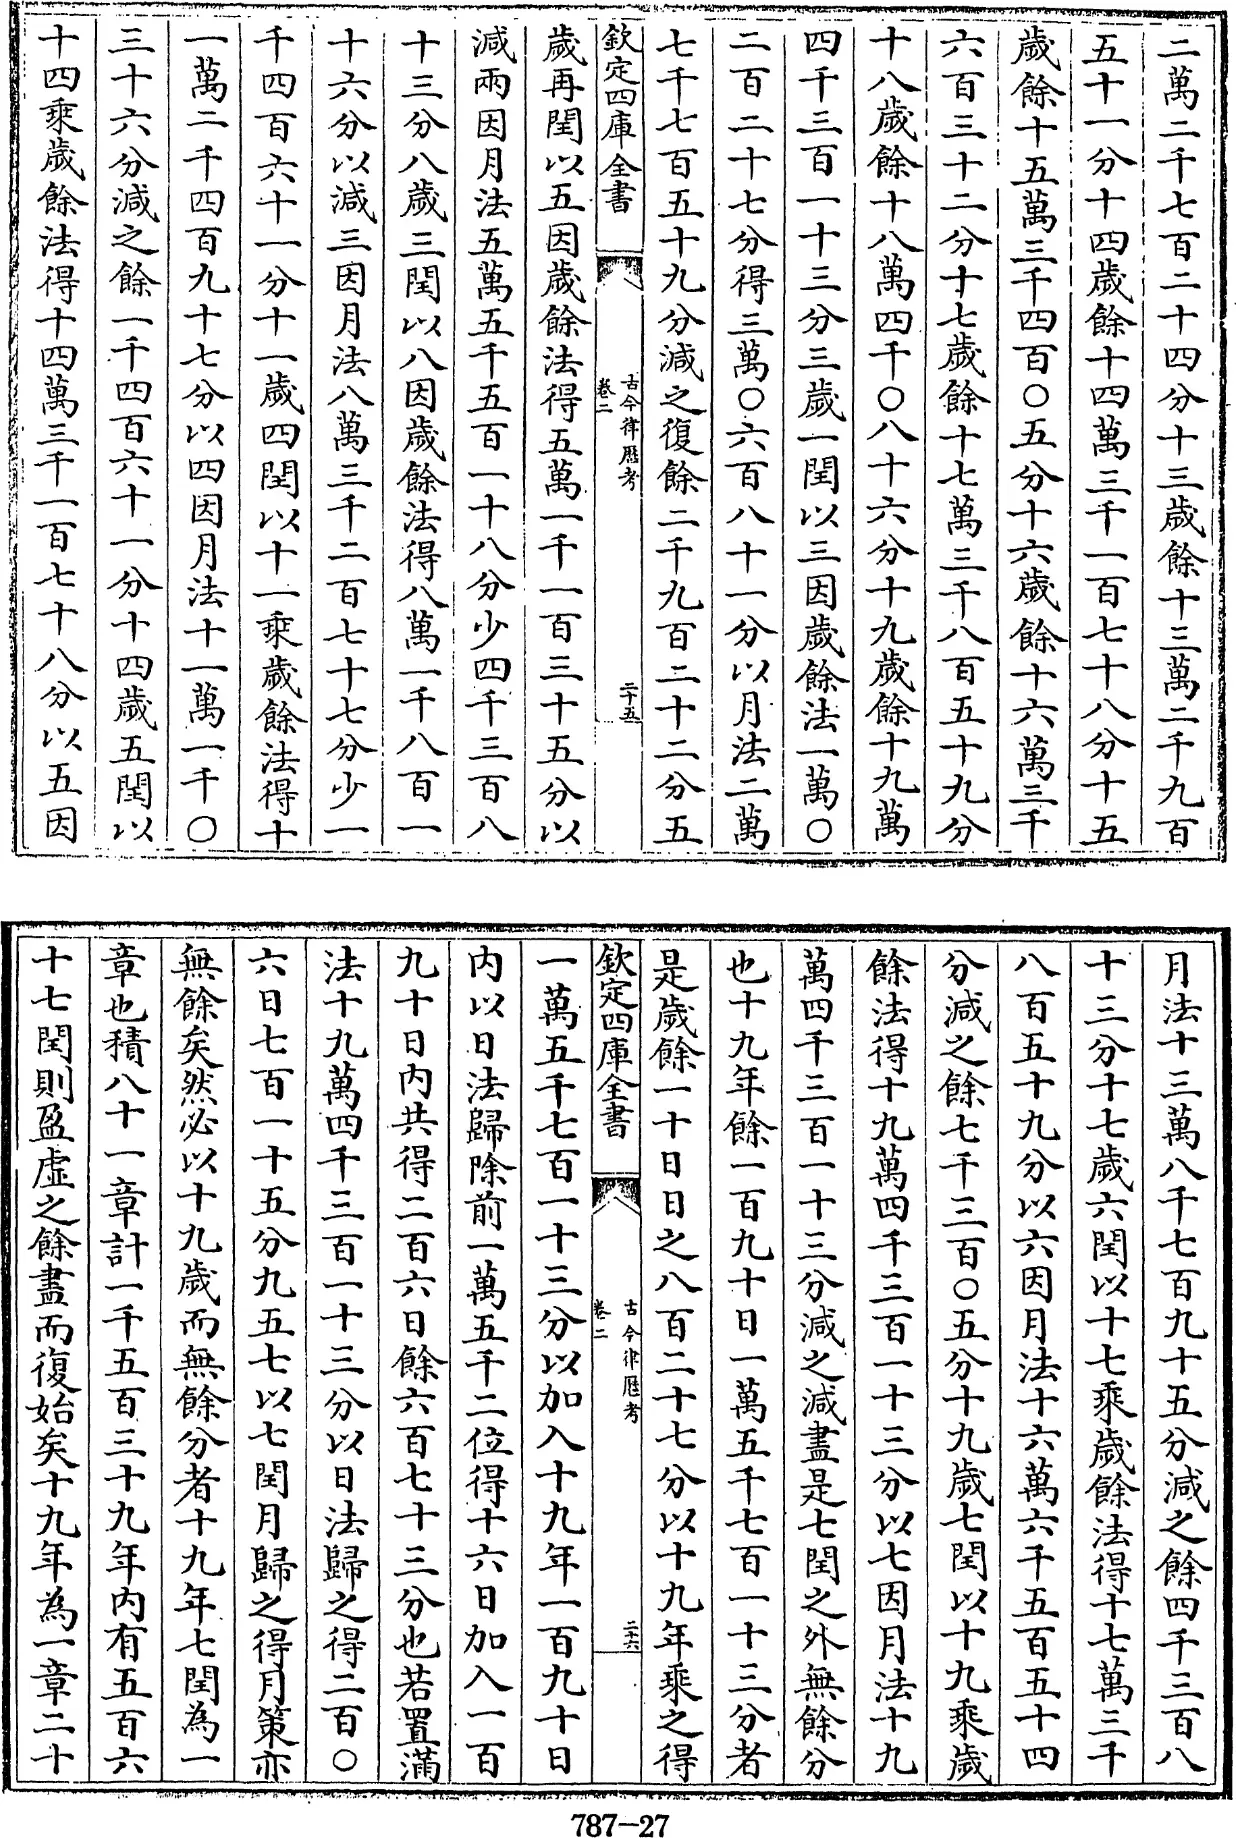 二萬二千七百二十四分十三歲餘十三萬二千九百
五十一分十四歲餘十四萬三千一百七十八分十五
歲餘十五萬三千四百〇五分十六歲餘十六萬三千
六百三十二分十七歲餘十七萬三千八百五十九分
十八歲餘十八萬四千〇八十六分十九歲餘十九萬
四千三百一十三分三歲一閏以三因歲餘法一萬〇
二百二十七分得三萬〇六百八十一分以月法二萬
七千七百五十九分減之復餘二千九百二十二分五
欽定四庫全書
古今律厯考
卷二
二十五
歲再閏以五因歲餘法得五萬一千一百三十五分以
減兩因月法五萬五千五百一十八分少四千三百八
十三分八歲三閏以八因歲餘法得八萬一千八百一
十六分以減三因月法八萬三千二百七十七分少一
千四百六十一分十一歲四閏以十一乘歲餘法得十
一萬二千四百九十七分以四因月法十一萬一千〇
三十六分減之餘一千四百六十一分十四歲五閏以
十四乘歲餘法得十四萬三千一百七十八分以五因
月法十三萬八千七百九十五分減之餘四千三百八
十三分十七歲六閏以十七乘歲餘法得十七萬三千
八百五十九分以六因月法十六萬六千五百五十四
分減之餘七千三百〇五分十九歲七閏以十九乘歲
餘法得十九萬四千三百一十三分以七因月法十九
萬四千三百一十三分減之減盡是七閏之外無餘分
也十九年餘一百九十日一萬五千七百一十三分者
是歲餘一十日日之八百二十七分以十九年乘之得
欽定四庫全書
古今律厯考
卷二
二十六
一萬五千七百一十三分以加入十九年一百九十日
内以日法歸除前一萬五千二位得十六日加入一百
九十日内共得二百六日餘六百七十三分也若置滿
法十九萬四千三百一十三分以日法歸之得二百〇
六日七百一十五分九五七以七閏月歸之得月策亦
無餘矣然必以十九歲而無餘分者十九年七閏為一
章也積八十一章計一千五百三十九年内有五百六
十七閏則盈虛之餘盡而復始矣十九年為一章二十
787—27